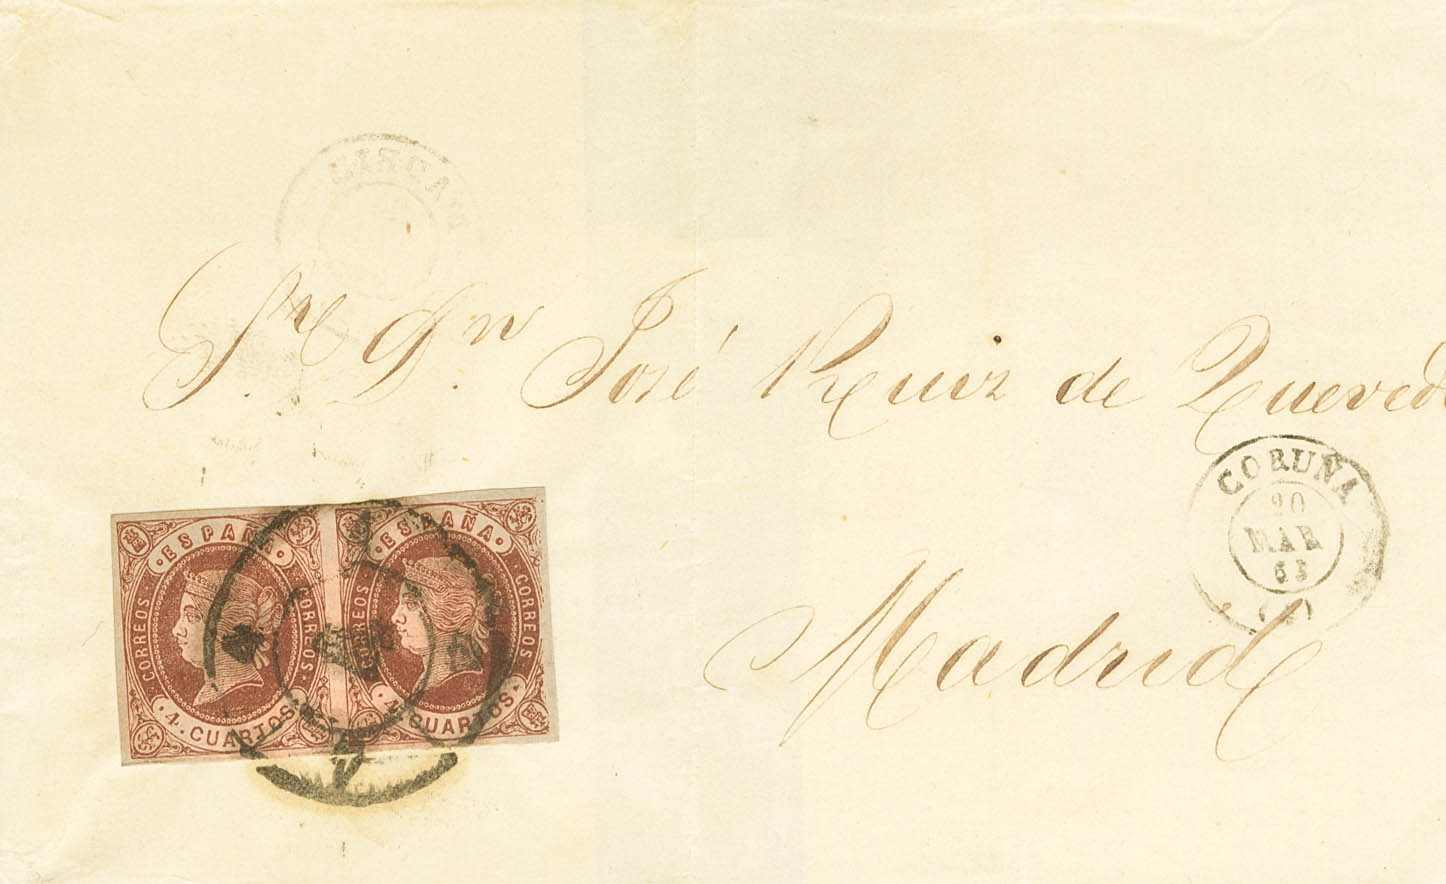 Sr. Dn. José Ruiz de Quevedo
CORUÑA
20
MAR
63
(1)
ESPAÑA
CORREOS
CORREOS
4 CUARTOS
ESPAÑA
CORREOS
CORREOS
4 CUARTOS
Madrid